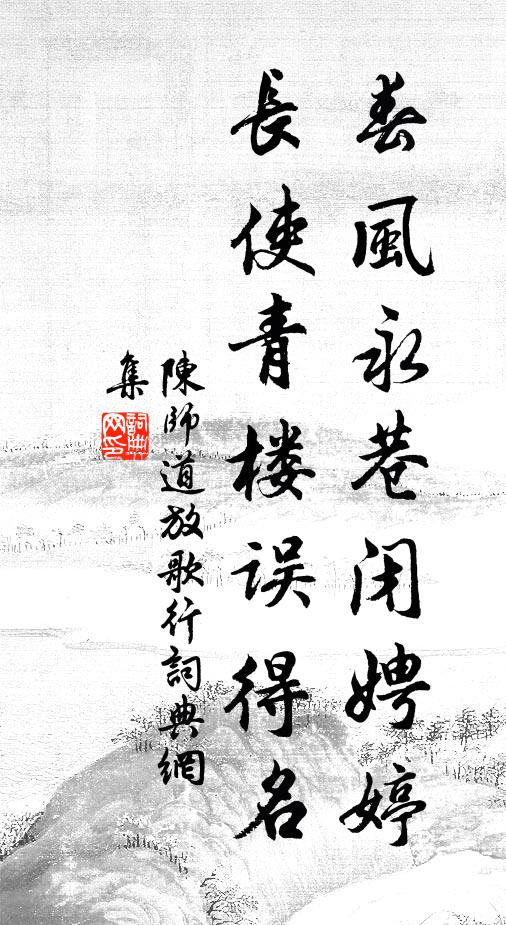 春風永巷閉娉婷
長使青楼误得名
陳師道放歌行詞典網
集
詞典网印